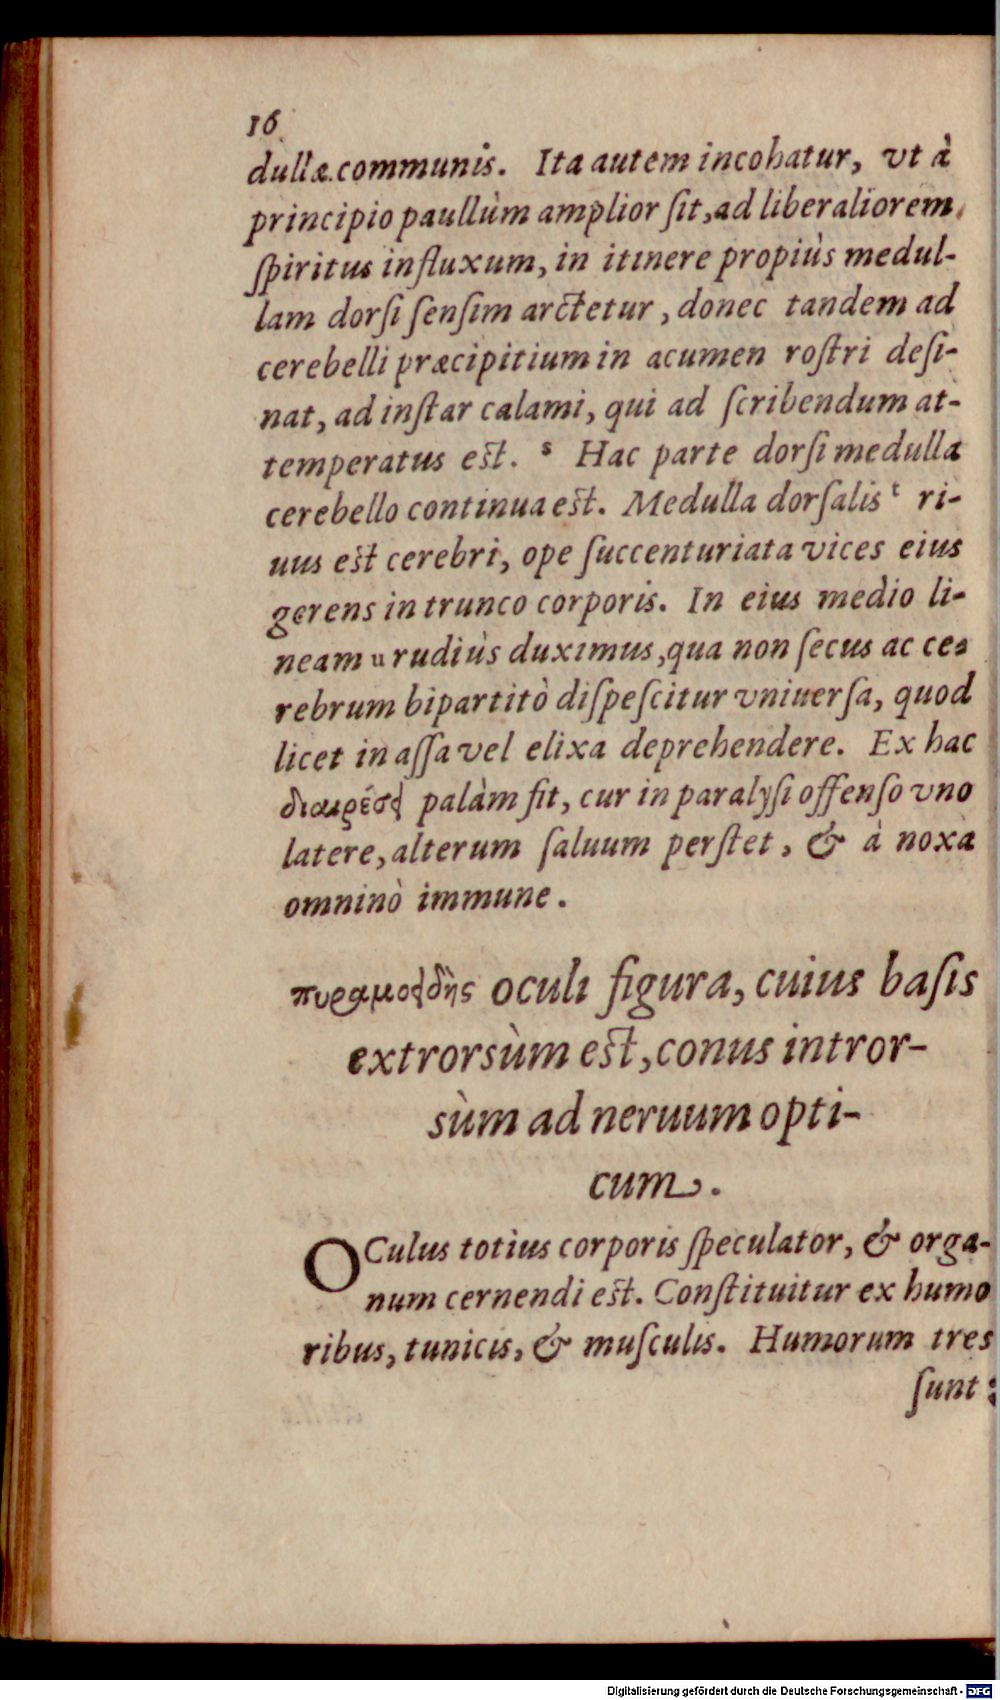 16
dullæ communis. Ita autem incohatur, vt à
principio paullùm amplior ſit, ad liberaliorem
ſpiritus influxum, in itinere propiùs medul-
lam dorſi ſenſim arctetur, donec tandem ad
cerebelli præcipitium in acumen roſtri deſi-
nat, ad inſtar calami, qui ad ſcribendum at-
temperatus eſt. s Hac parte dorſi medulla
cerebello continua eſt. Medulla dorſalis t ri-
uus eſt cerebri, ope ſuccenturiata vices eius
gerens in trunco corporis. In eius medio li-
neam u rudiùs duximus, qua non ſecus ac ce-
rebrum bipartitò diſpeſcitur vniuerſa, quod
licet in aſſa vel elixa deprehendere. Ex hac
διαιρέσει palàm fit, cur in paralyſi offenſo vno
latere, alterum ſaluum perſtet, & à noxa
omninò immune.
πυραμοειδὴς oculi figura, cuius baſis
extrorsùm eſt, conus intror-
sùm ad neruum opti-
cum.
OCulus totius corporis ſpeculator, & orga-
num cernendi eſt. Conſtituitur ex humo
ribus, tunicis, & muſculis. Humorum tres
ſunt:
Digitalisierung gefördert durch die Deutsche Forschungsgemeinschaft - DFG